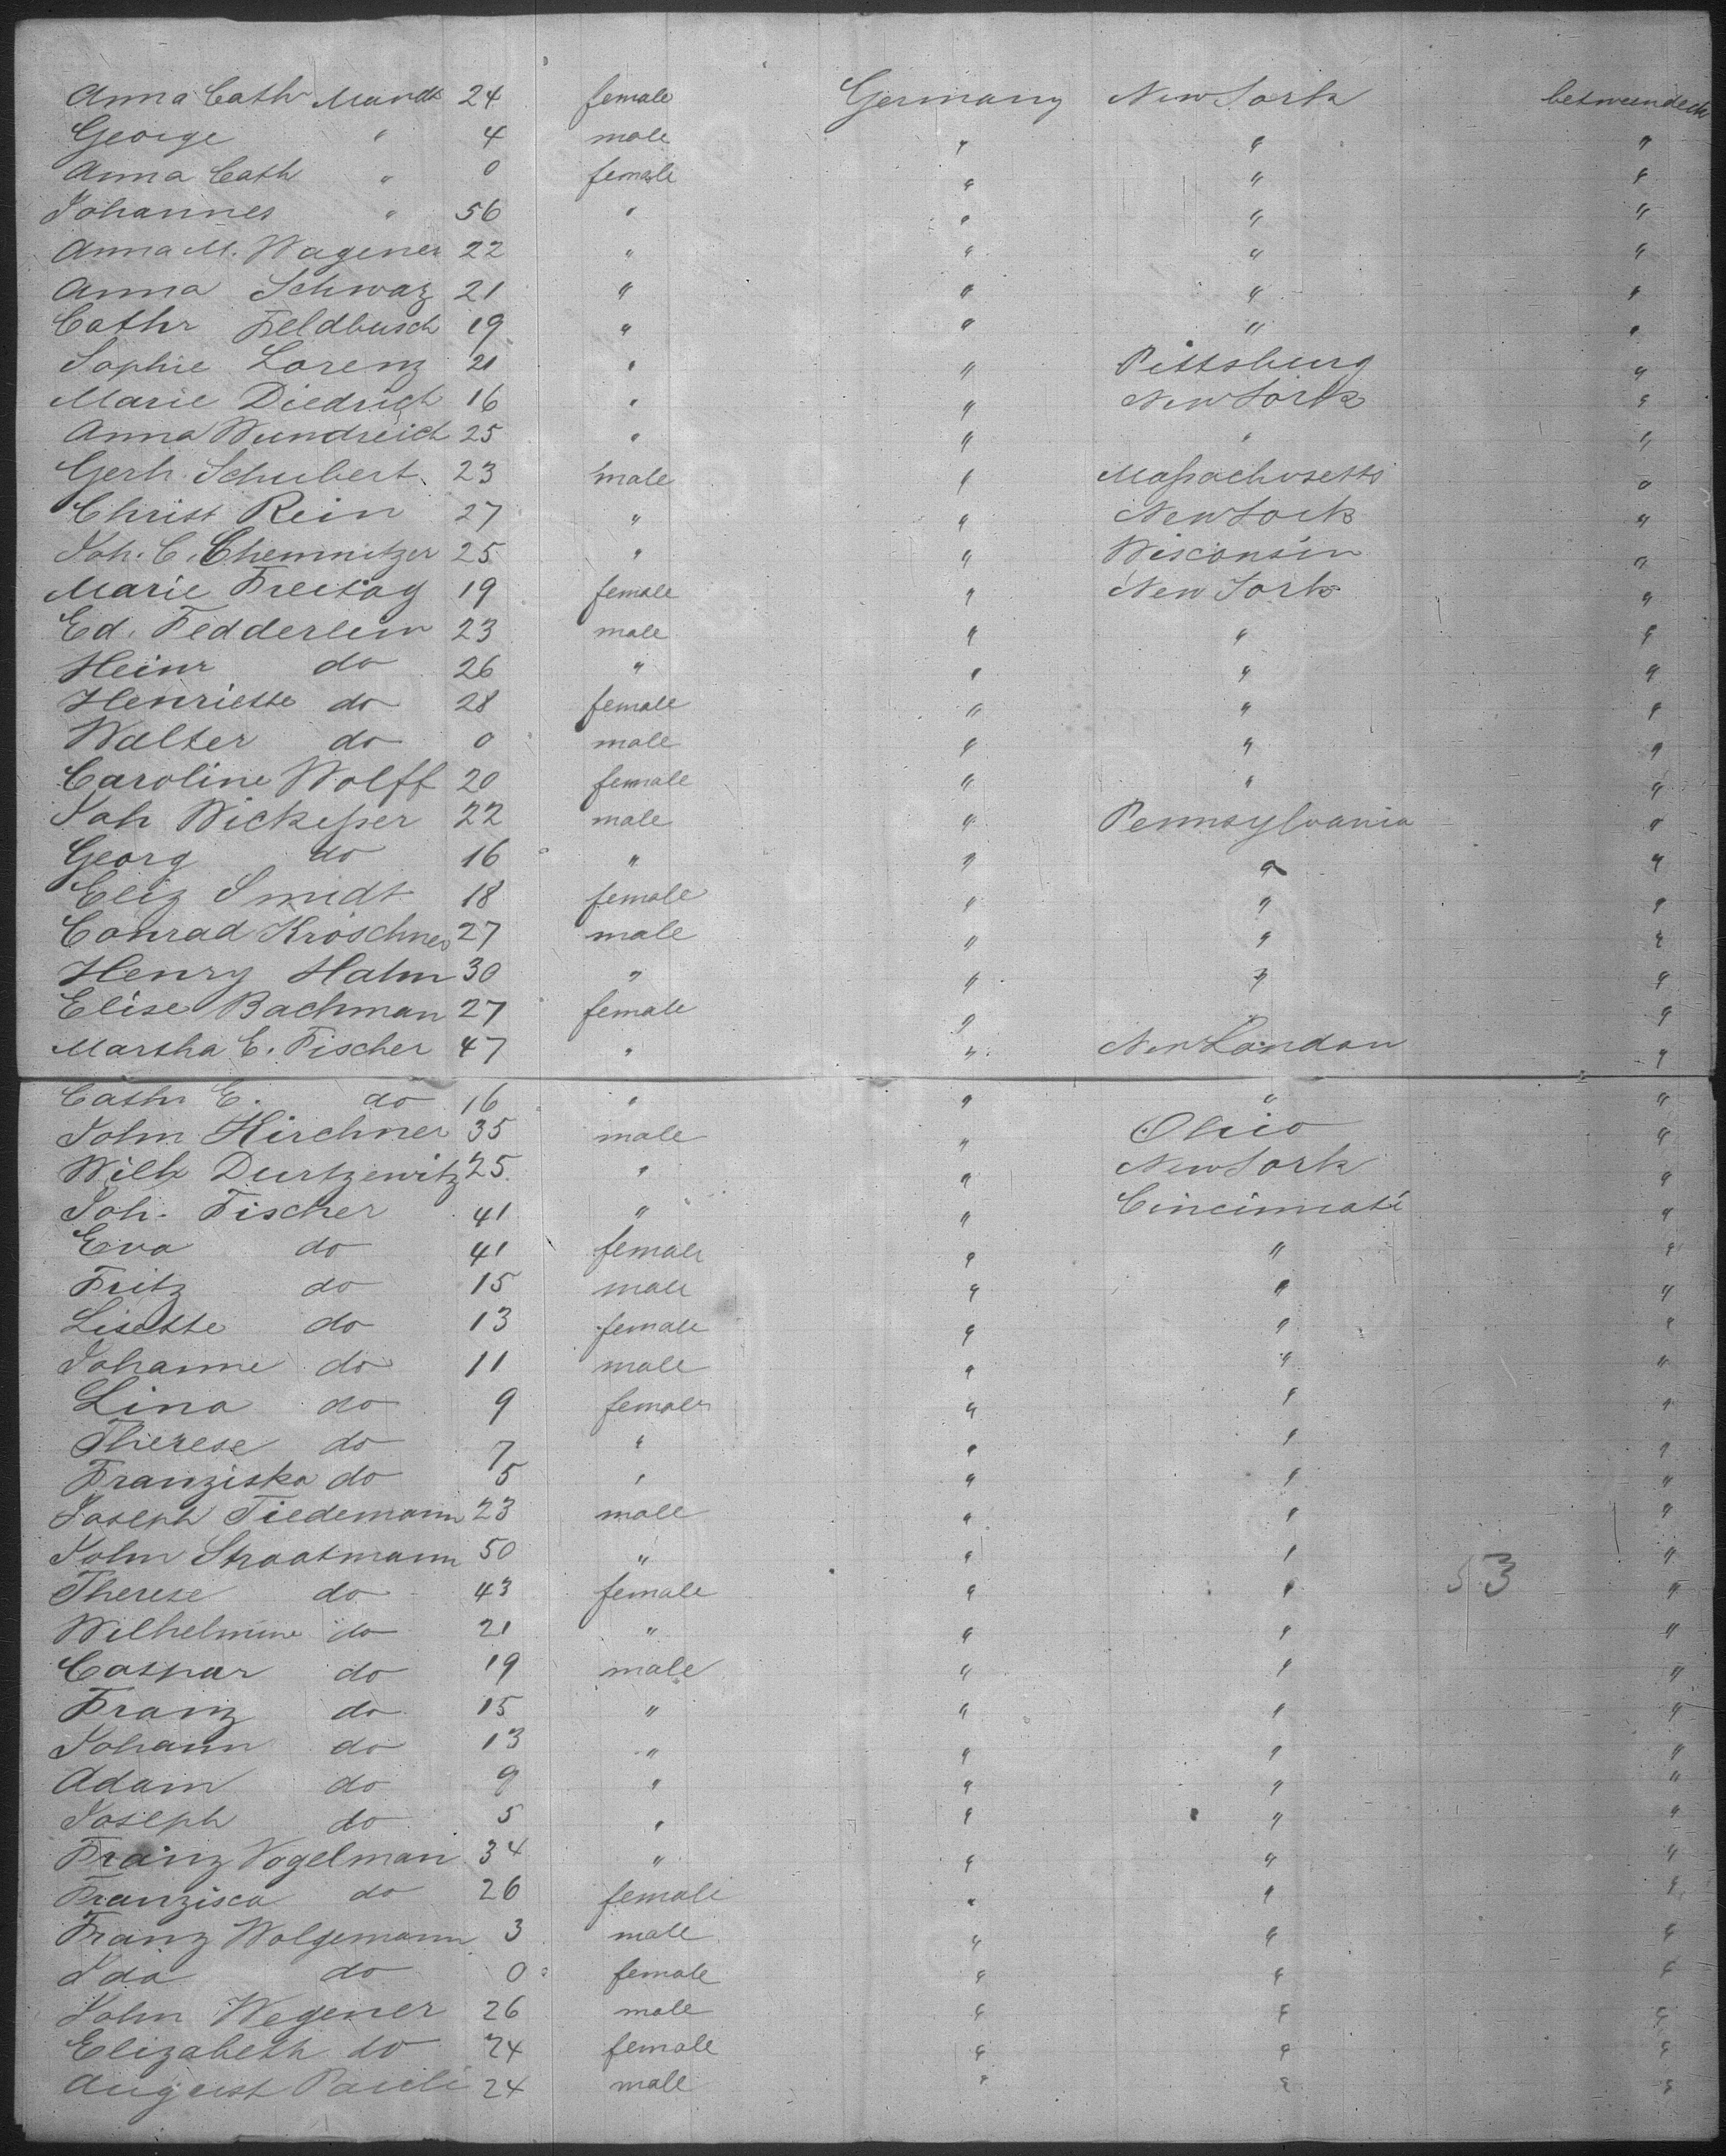 Anna Cath Mandt 24 female Germany New York betweendeck
George " 4 male " " "
Anna Cath " 0 female " " "
Johannes " 56 " " " "
Anna M. Wagener 22 " " " "
Anna Schwarz 21 " " " "
Cathr Feldbusch 19 " " " "
Sophie Lorenz 21 " " Pittsburg "
Marie Diedrich 16 " " New York "
Anna Wundreich 25 " " " "
Gerh. Schubert 23 male " Massachusetts "
Christ Rein 27 " " New York "
Joh. C. Chemnitzer 25 " " Wisconsin "
Marie Freitag 19 female " New York "
Ed. Fedderlein 23 male " " "
Heinr do 26 " " " "
Henriette do 28 female " " "
Walter do 0 male " " "
Caroline Wolff 20 female " " "
Joh Wickesser 22 male " Pennsylvania "
Georg do 16 " " " "
Eliz Smidt 18 female " " "
Conrad Kröschner 27 male " " "
Henry Halm 30 " " " "
Elise Bachman 27 female " " "
Martha E. Fischer 47 " " New London "
Cathr E. do 16 " " " "
John Hirchner 35 male " Ohio "
Wilh Durtzewitz 25 " " New York "
Joh. Fischer 41 " " Cincinnati "
Eva do 41 female " " "
Fritz do 15 male " " "
Lisette do 13 female " " "
Johanne do 11 male " " "
Lina do 9 female " " "
Therese do 7 " " " "
Franziska do 5 " " " "
Joseph Tiedemann 23 male " " "
John Straatmann 50 " " " "
53
Therese do 43 female " " "
Wilhelmine do 21 " " " "
Caspar do 19 male " " "
Franz do 15 " " " "
Johann do 13 " " " "
Adam do 9 " " " "
Joseph do 5 " " " "
Franz Vogelman 34 " " " "
Franzisca do 26 female " " "
Franz Wolgemann 3 male " " "
Ida do 0 female " " "
John Wegener 26 male " " "
Elizabeth do 24 female " " "
August Pauli 24 male " " "